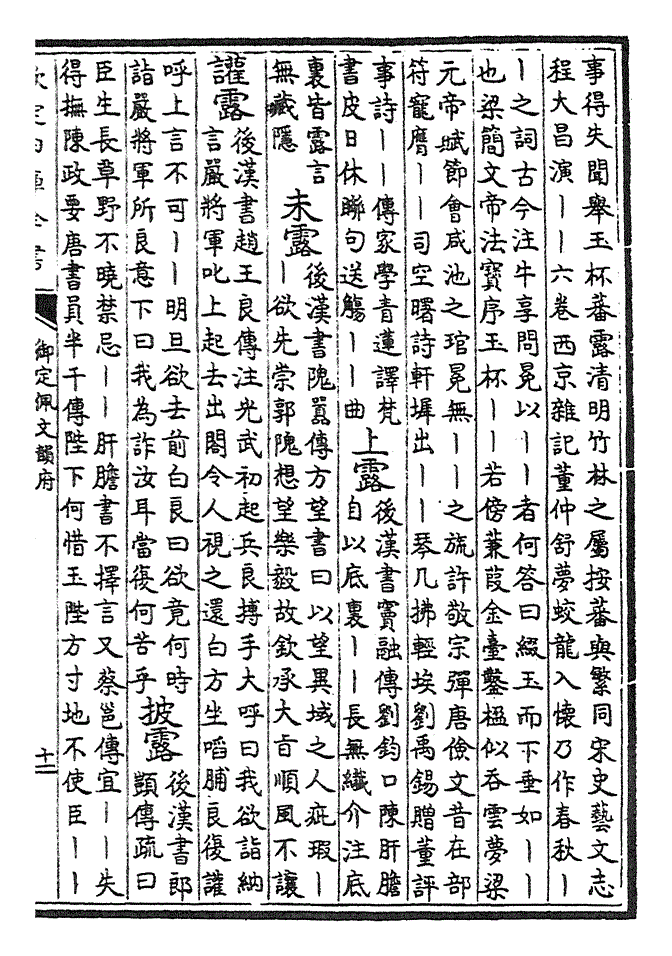 事得失聞舉玉杯蕃露清明竹林之屬按蕃與繁同宋史藝文志
程大昌演丨丨六卷西京雜記董仲舒夢蛟龍入懷乃作春秋丨
丨之詞古今注牛享問冕以丨丨者何答曰綴玉而下垂如丨丨
也梁簡文帝法寶序玉杯丨丨若傍蒹葭金臺鑿楹似吞雲夢梁
元帝賦節會咸池之琯冕無丨丨之旒許敬宗彈唐儉文昔在部
符寵膺丨丨司空曙詩軒墀出丨丨琴几拂輕埃劉禹錫贈董評
事詩丨丨傳家學青蓮譯梵
書皮日休聯句送觴丨丨曲
上露
後漢書竇融傳劉鈞口陳肝膽
自以底裏丨丨長無纖介注底
裏皆露言
無藏隱
未露
後漢書隗囂傳方望書曰以望異域之人疵瑕丨
丨欲先崇郭隗想望樂毅故欽承大旨順風不讓
讙露
後漢書趙王良傳注光武初起兵良搏手大呼曰我欲詣納
言嚴將軍叱上起去出閤令人視之還白方坐啗脯良復讙
呼上言不可丨丨明旦欲去前白良曰欲竟何時
詣嚴將軍所良意下曰我為詐汝耳當復何苦乎
披露
後漢書郎
顗傳疏曰
臣生長草野不曉禁忌丨丨肝膽書不擇言又蔡邕傳宜丨丨失
得撫陳政要唐書員半千傳陛下何惜玉陛方寸地不使臣丨丨
欽定四庫全書
御定佩文韻府
十二